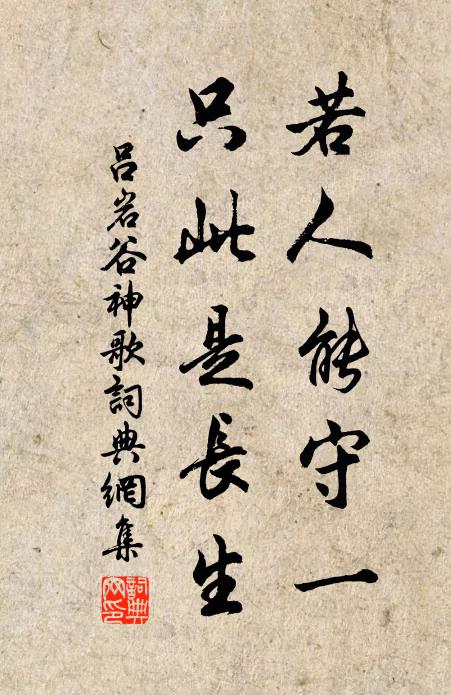 若人能守一
只此是長生
吕岩谷神歌詞典網集
詞典网印